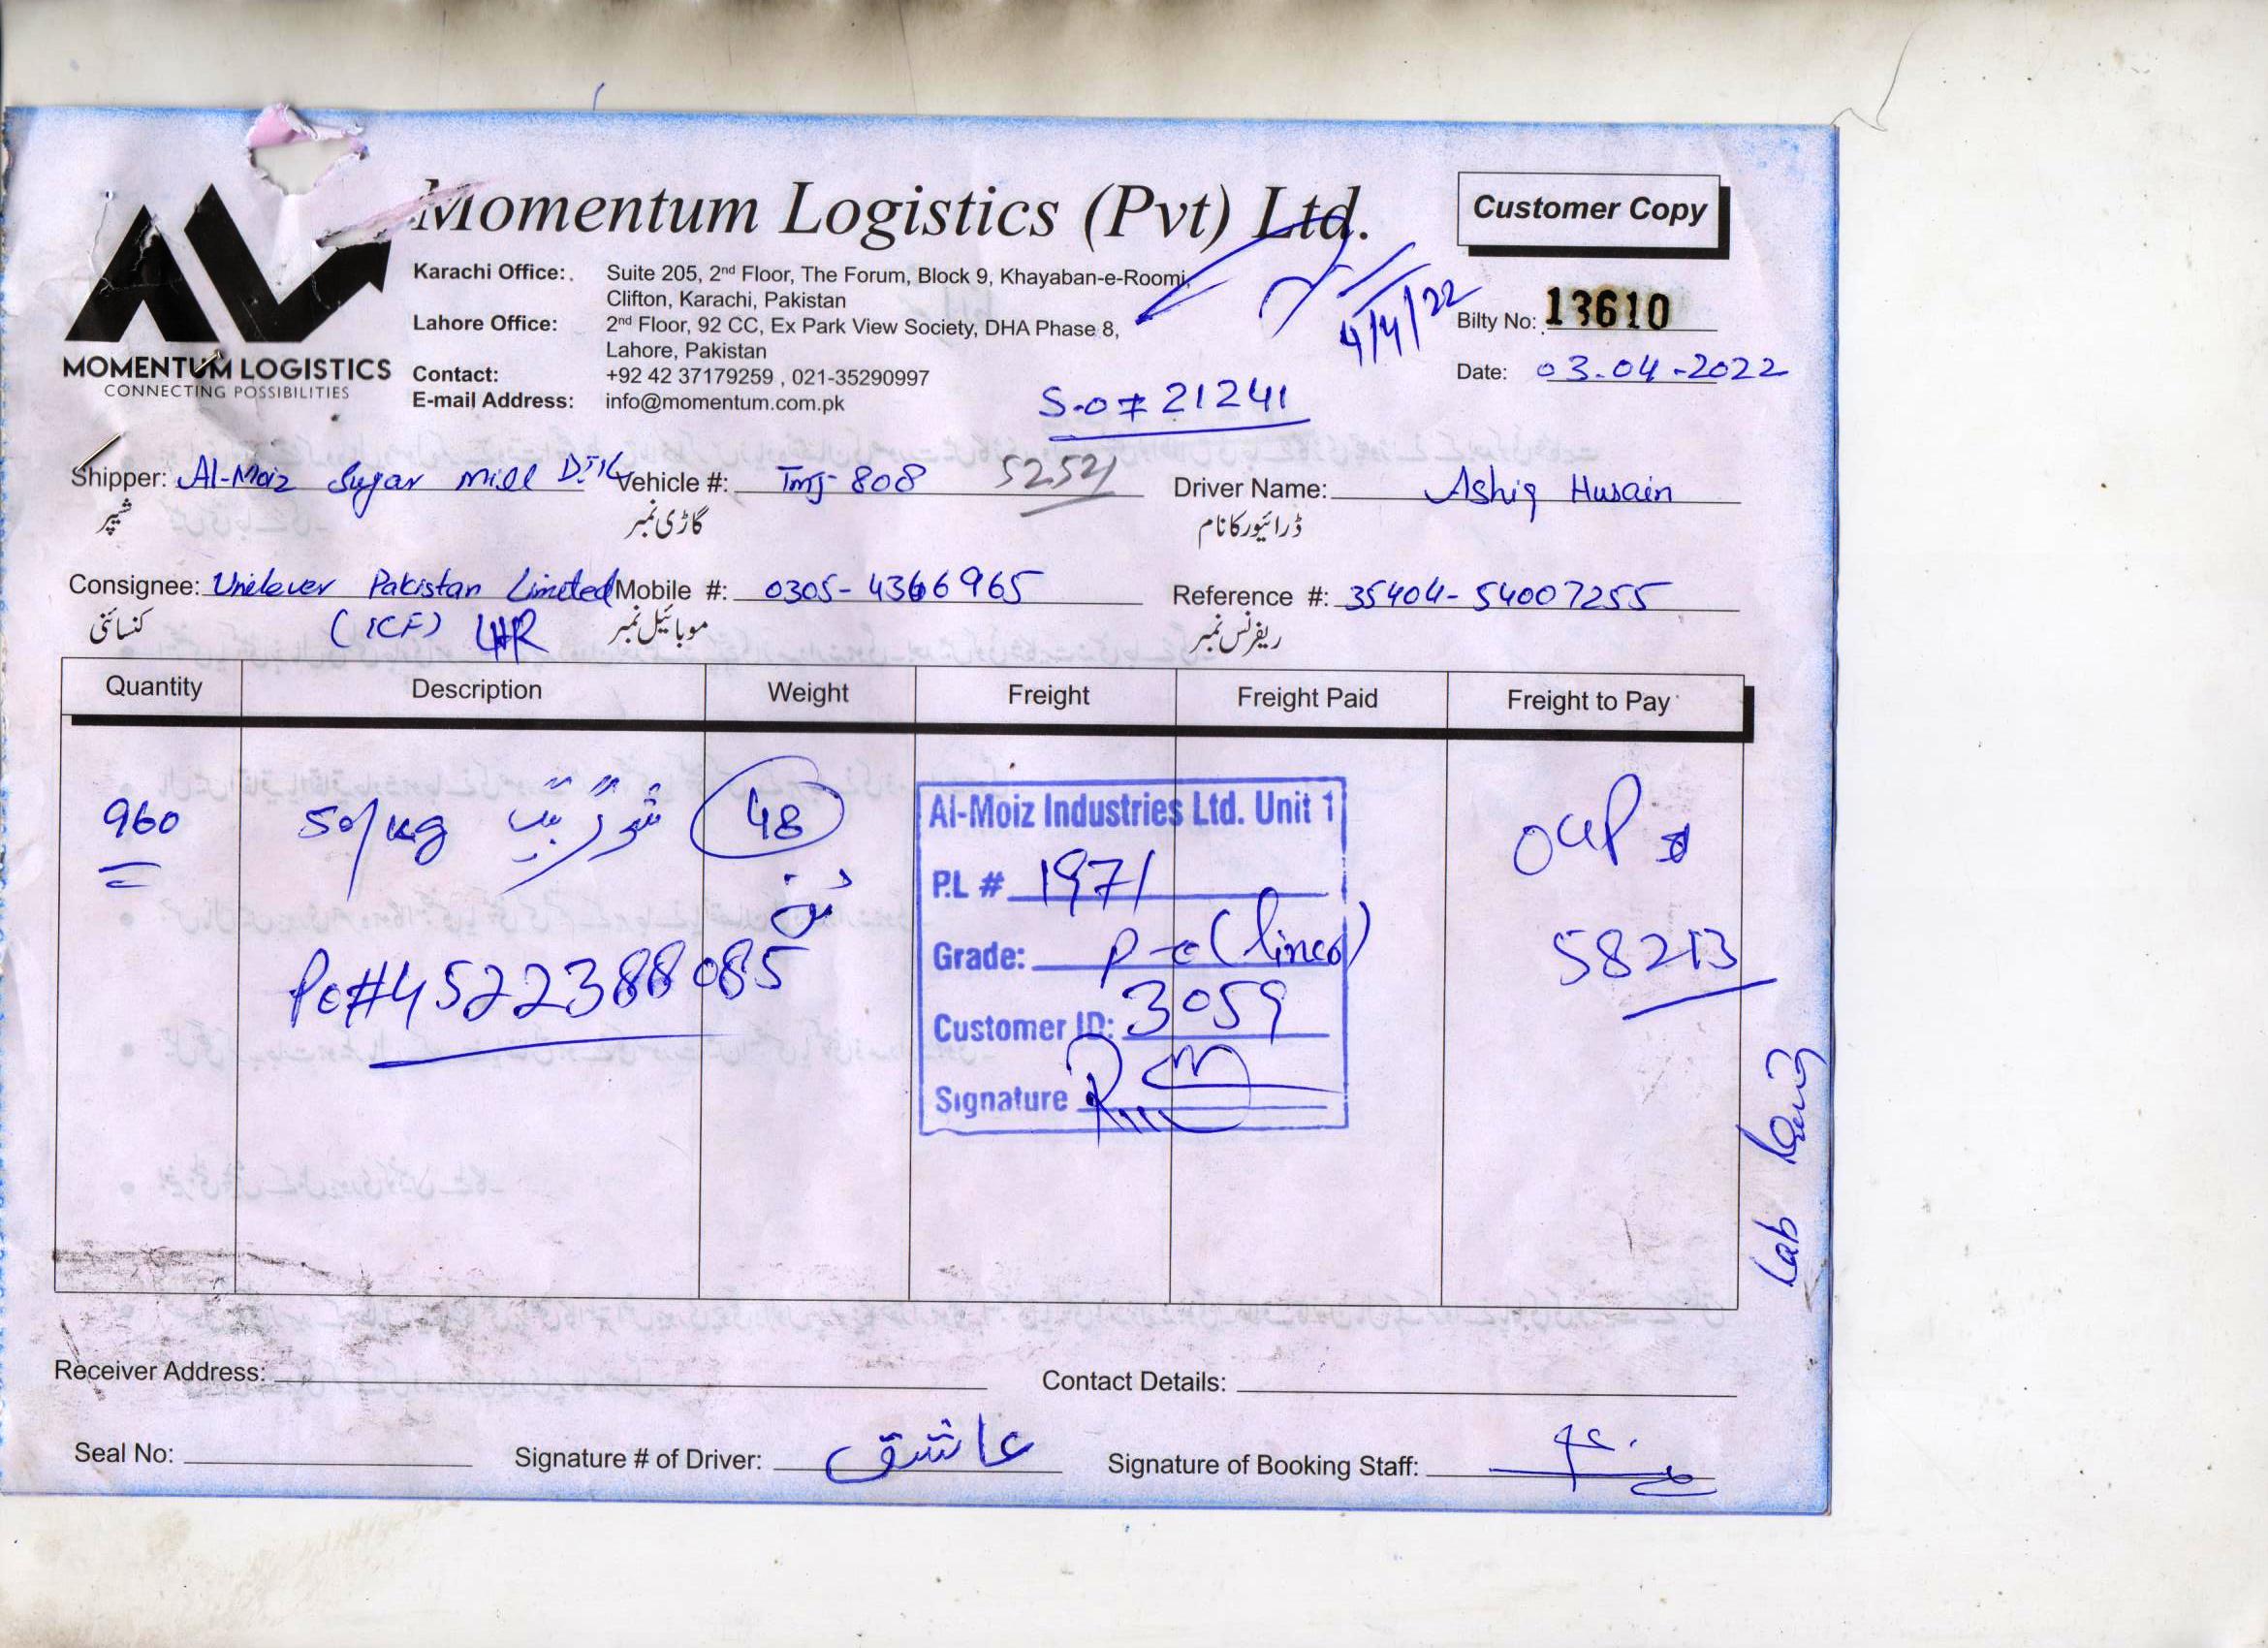 Momentum Logistics (Pvt) Ltd.
Customer Copy
MOMENTUM LOGISTICS
CONNECTING POSSIBILITIES
Karachi Office: Suite 205, 2nd Floor, The Forum, Block 9, Khayaban-e-Roomi,
Clifton, Karachi, Pakistan
Lahore Office: 2nd Floor, 92 CC, Ex Park View Society, DHA Phase 8,
Lahore, Pakistan
Contact: +92 42 37179259 , 021-35290997
E-mail Address: info@momentum.com.pk
4/4/22
Bilty No: 13610
Date: 03.04-2022
S.O # 21241
Shipper: Al-Moiz Sugar Mill Vehicle #: TMJ-808 Driver Name: Ashiq Husain
شیپر گاڑی نمبر ڈرائیور کا نام
Consignee: Unilever Pakistan Limited Mobile #: 0305-4366965 Reference #: 35404-54007255
کنسائنی (ICF) LHR موبائیل نمبر ریفرنس نمبر
Quantity Description Weight Freight Freight Paid Freight to Pay
960 50/kg 48
ٹن
Po#4522388085
Al-Moiz Industries Ltd. Unit 1
P.L # 1971
Grade:
Customer ID: 3059
Signature
58213
Lab
Receiver Address: Contact Details:
Seal No: Signature # of Driver: عاشق Signature of Booking Staff: